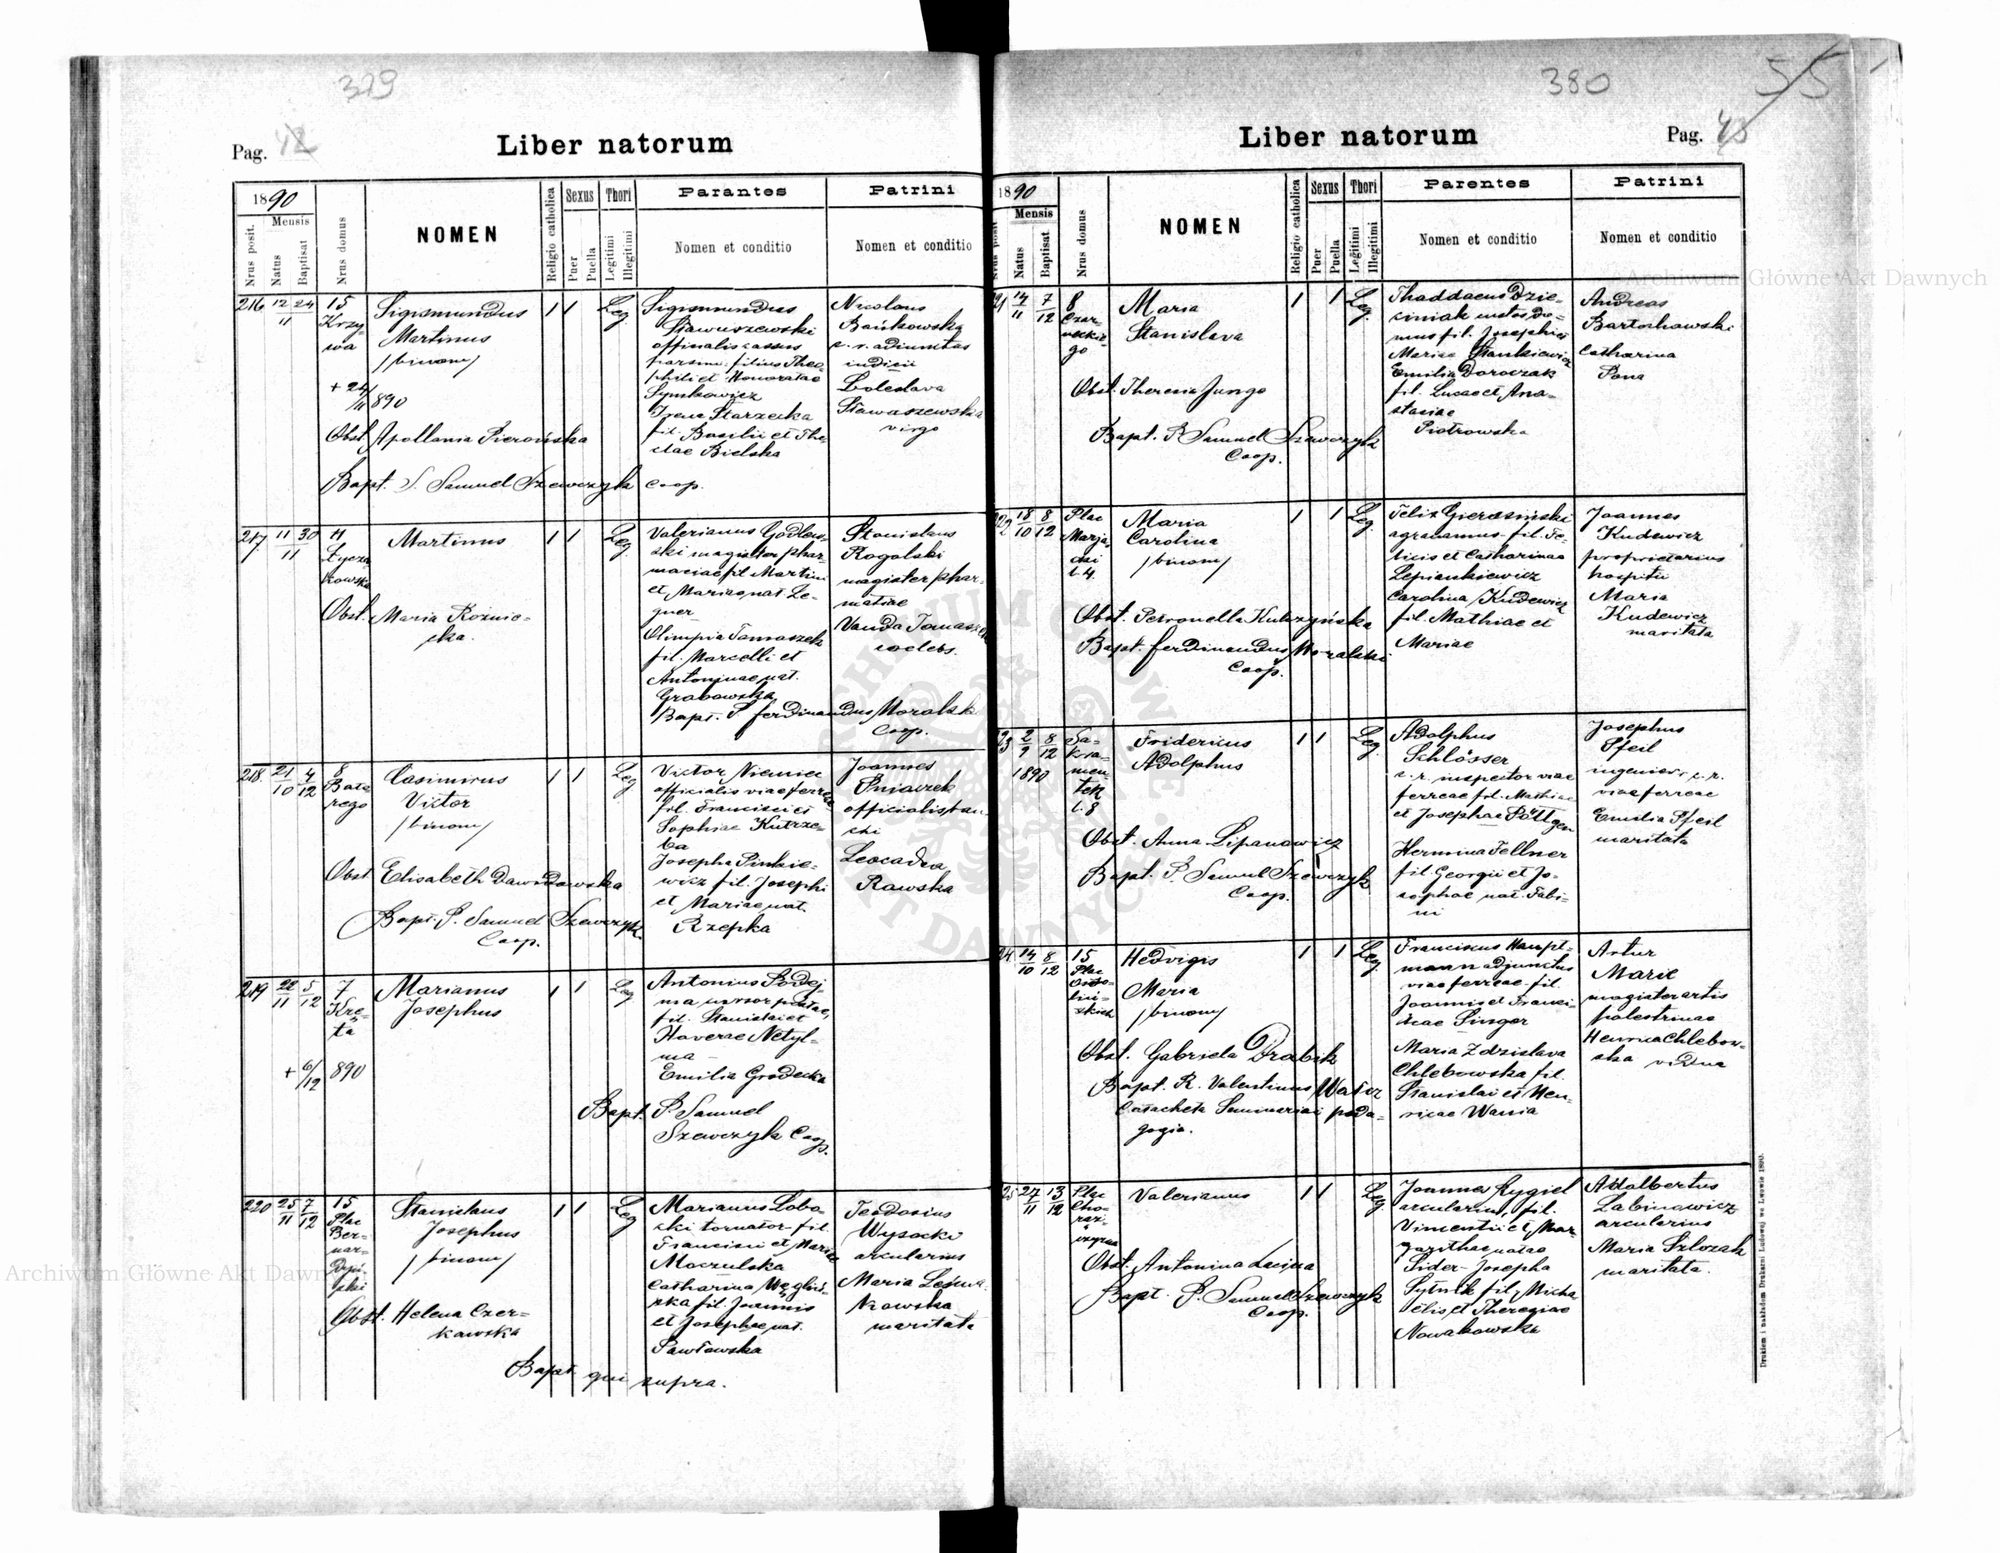 379
Pag. 42
Liber natorum
1890
Mensis
Nrus posit.
Natus
Baptisat
Nrus domus
NOMEN
Religio catholica
Sexus
Puer
Puella
Thori
Legitimi
Illegitimi
Parantes
Nomen et conditio
Patrini
Nomen et conditio
216 12/11 24
15
Krzy-
wa
Sigismundus
Martinus
/binom/
+ 24/11 890
Obst. Apollonia Pierońska
Bapt. S. Samuel Szewczyk Coop.
1 1 Leg.
Sigismundus
Stawuszewski
officialis cassus
parsim. filius Theo-
phili et Honoratae
Symkowicz
Irena Starzecka
fil. Basilii et The-
clae Bielska
Nicolaus
Bańkowski
c. r. adiunctus
iudicii
Boleslava
Stawaszewska
virgo
217 11 30/11
11
Łycza
kowska
Martinus
Obst. Maria Rożnie-
cka.
1 1 Leg.
Valerianus Godlew-
ski magister phar-
maciae fil. Martini
et Mariae nat. Le-
gner
Olimpia Tomaszek
fil. Marcelli et
Antoninae nat.
Grabowska
Bapt. P. Ferdinandus Moralski
Coop.
Stanislaus
Rogalski
magister phar-
matiae
Vanda Tomaszek
coelebs.
218 21/10 4/12
8
Bato
rego
Casimirus
Victor
/binom/
Obst. Elisabeth Dawidowska
Bapt. P. Samuel Szewczyk
Coop.
1 1 Leg
Victor Niemiec
officialis viae ferreae
fil. Francisci et
Sophiae Kutrze-
ba
Josepha Pinkie-
wicz fil. Josephi
et Mariae nat.
Rzepka
Joannes
Śniaczek
officialis ban-
chi
Leocadia
Rawska
219 22/11 5/12
7
Krę-
ta
Marianus
Josephus
+ 6/12 890
1 1 Leg
Antonius Podej-
ma
fil. Stanislai et
Netyl-
ma
Emilia Grodecka
Bapt. P. Samuel
Szewczyk Coop.
220 25/11 7/12
15
Plac
Ber-
nar-
dyń-
ski
Stanislaus
Josephus
/binom/
Obst. Helena Czer-
kawska
1 1 Leg
Marianus Lobo
cki tornator fil.
Francisci et Mariae
Moczulska
Catharina Węgliń-
ska fil. Joannis
et Josephae nat.
Pawłowska
Bapt. qui supra.
Teodosius
Wysocki
arcularius
Maria Lewa-
kowska
maritata
380
55
Liber natorum
Pag. 43
1890
Mensis
Nrus posit
Natus
Baptisat.
Nrus domus
NOMEN
Religio catholica
Sexus
Puer
Puella
Thori
Legitimi
Illegitimi
Parentes
Nomen et conditio
Patrini
Nomen et conditio
21 14/11 7/12
8
Czar-
neckie-
go
Maria
Stanislava
Obst. Theresia Jungo
Bapt. P. Samuel Szewczyk
Coop.
1 1 Leg.
Thaddaeus Dzie-
ciniak custos do-
mus fil. Josephi et
Mariae Stankiewicz
Emilia Doroczak
fil. Lucae et Ana-
stasiae
Piotrowska
Andreas
Bartochowski
Catharina
Pona
222 18/10 8/12
Plac
Marja-
cki
l. 4.
Maria
Carolina
/binom/
Obst. Petronella Kulczyńska
Bapt. Ferdinandus Moralski
Coop.
1 1 Leg
Felix Gierasiński
agranamus fil. Fe-
licis et Catharinae
Lepiankiewicz
Carolina Kudewicz
fil. Mathiae et
Mariae
Joannes
Kudewicz
proprietarius
hospitii
Maria
Kudewicz
maritata
23 2/9 8/12
1890
Sa-
kra-
men-
tek
l. 8
Fridericus
Adolphus
Obst. Anna Lipanowicz
Bapt. P. Samuel Szewczyk
Coop.
1 1 Leg.
Adolphus
Schlösser
c. r. inspector viae
ferreae fil. Mathiae
et Josephae Pöttgen
Hermina Fellner
fil. Georgii et Jo-
sephae nat. Fabi-
ni
Josephus
Pfeil
ingenieur c. r.
viae ferreae
Emilia Pfeil
maritata
24 14/10 8/12
15
Plac
Osso-
liń-
skich
Hedvigis
Maria
/binom/
Obst. Gabriela Drabik
Bapt. R. Valentinus Wałcz
Catacheta Seminariae peda-
gogia.
1 1 Leg.
Franciscus Haupt-
mann adjunctus
viae ferreae fil.
Joannis et Franci-
scae Singer
Maria Zdzislava
Chlebowska fil.
Stanislai et Hen-
ricae Wania
Artur
Marie
magister artis
palestrinae
Henrica Chlebow-
ska vidua
25 27/11 13/12
Plac
Cho-
rąż-
czyzna
Valerianus
Obst. Antonina Lacina
Bapt. P. Samuel Szewczyk
Coop.
1 1 Leg
Joannes Rygiel
arcularius, fil.
Vincentii et Mar-
garithae natae
Sider- Josepha
Sytnik fil. Micha
elis et Theresiae
Nowakowski
Adalbertus
Labinowicz
arcularius
Maria Szlozak
maritata.
Drukiem i nakładem Drukarni Ludowej we Lwowie 1890.
Archiwum Główne Akt Dawnych
Archiwum Główne Akt Dawnych
ARCHIWUM GŁÓWNE AKT DAWNYCH